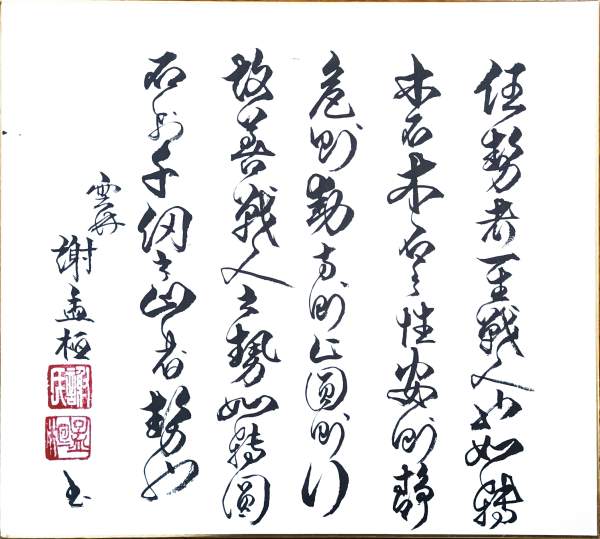 任勢者其戰人也如轉
木石木石之性安則靜
危則動方則止圓則行
故善戰人之勢如轉圓
石於千仞之山者勢也
雲林
謝孟極
謝氏
孟極
書